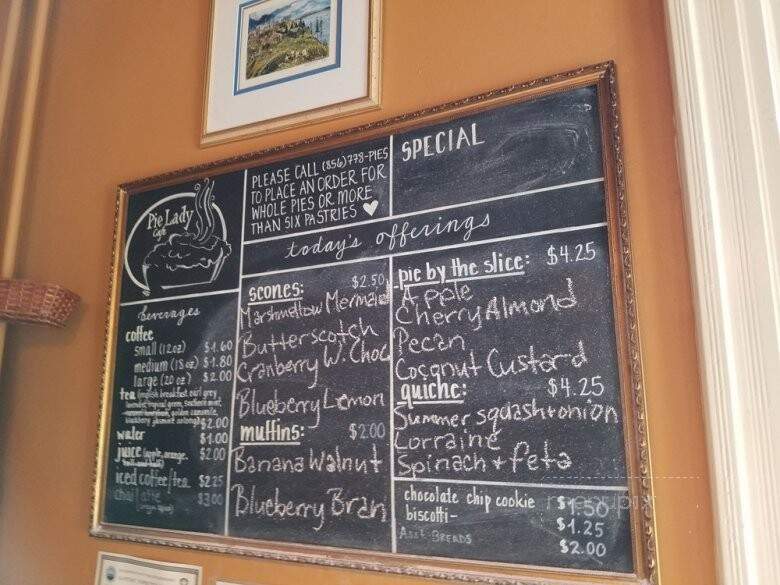 Pie Lady
Cafe
PLEASE CALL (856)778-PIES
TO PLACE AN ORDER FOR
WHOLE PIES OR MORE
THAN SIX PASTRIES
SPECIAL
today's offerings
beverages
coffee
small (12oz) $1.60
medium (16 oz) $1.80
large (20 oz) $2.00
tea (english breakfast, earl grey,
$2.00
water $1.00
juice (apple, orange, $2.00
iced coffee/tea $2.25
chai latte $3.00
scones: $2.50
Marshmallow Mermaid
Butterscotch
Cranberry W. Choc
Blueberry Lemon
muffins: $2.00
Banana Walnut
Blueberry Bran
pie by the slice: $4.25
Apple
Cherry Almond
Pecan
Coconut Custard
quiche: $4.25
Summer squash+onion
Lorraine
Spinach + feta
chocolate chip cookie $1.50
biscotti- $1.25
Asst Breads $2.00